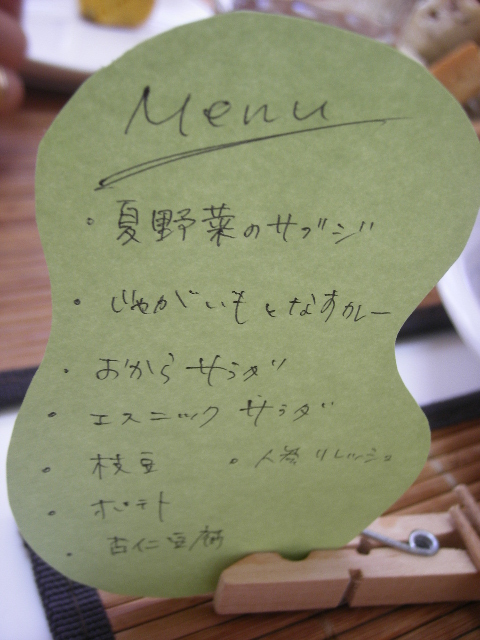 Menu
・夏野菜のサブジ
・じゃがいもとなすカレー
・おからサラダ
・エスニックサラダ
・枝豆 ・人参リレッシュ
・ポテト
・杏仁豆腐